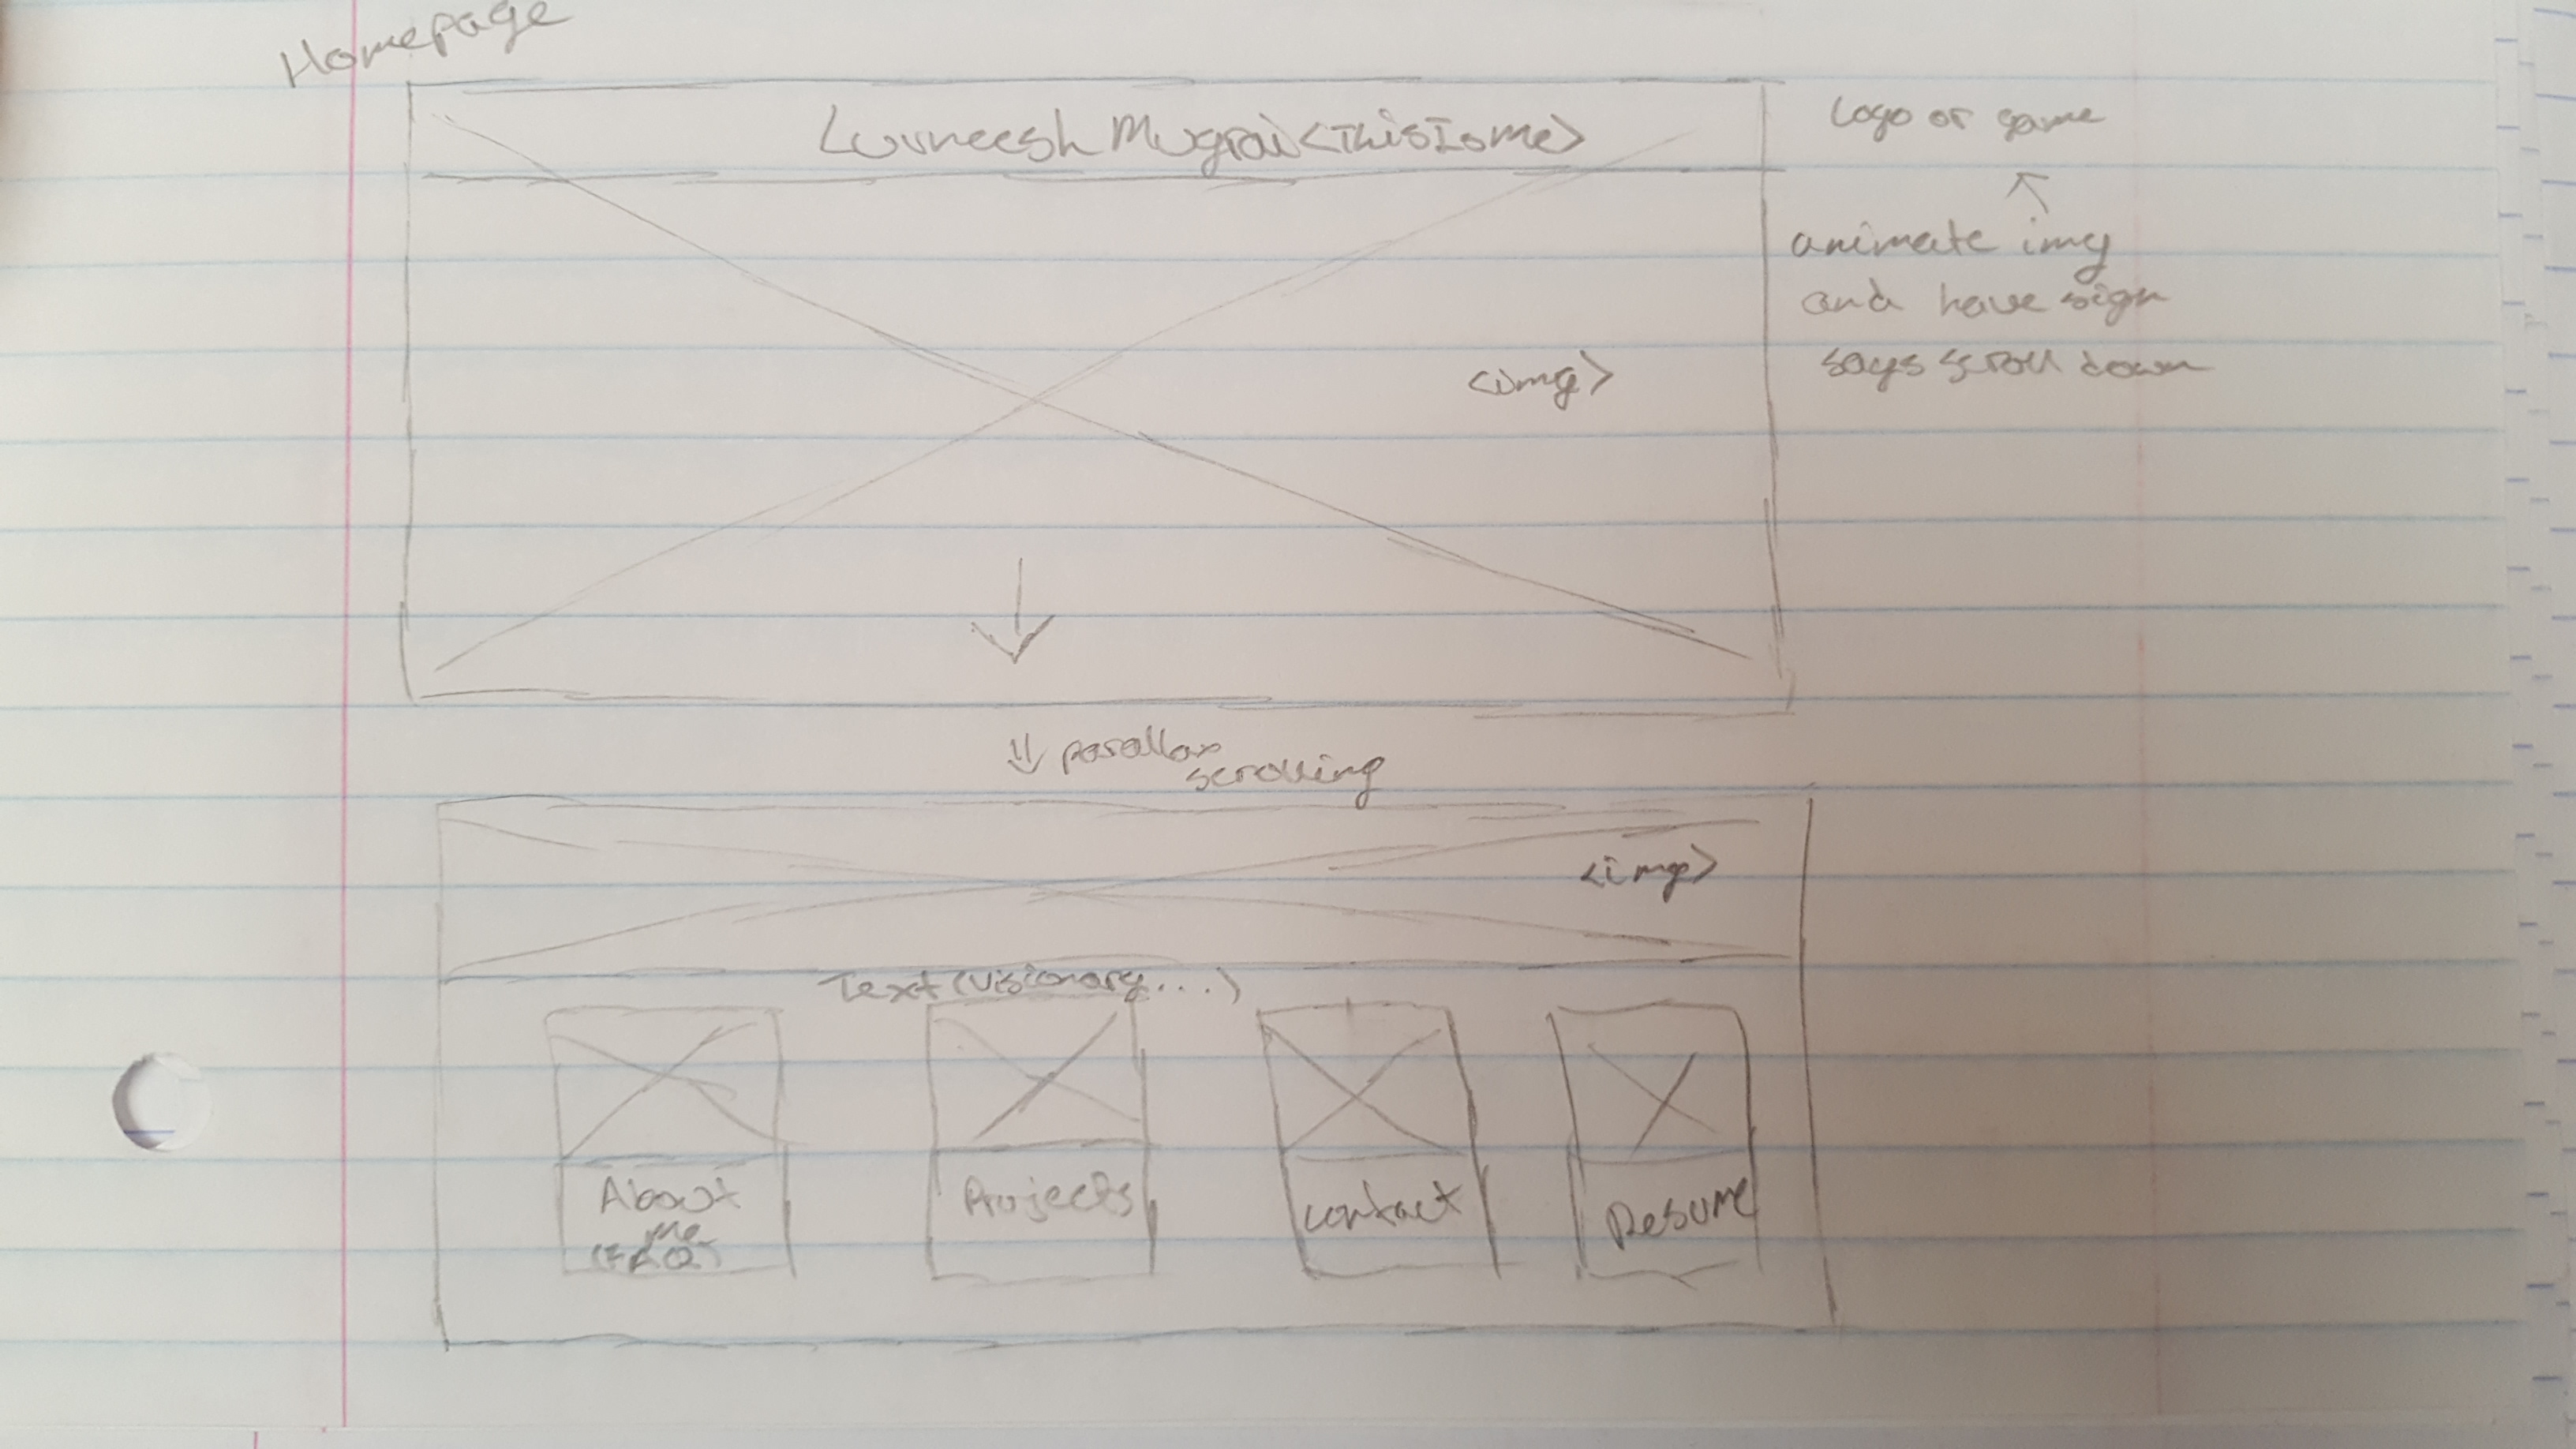 Homepage
Luvneesh Mugrai <ThisIsMe>
Logo or game
animate img
and have sign
says scroll down
<img>
parallax
scrolling
<img>
Text (visionary...)
About
me
(FAQ)
Projects
contact
Resume